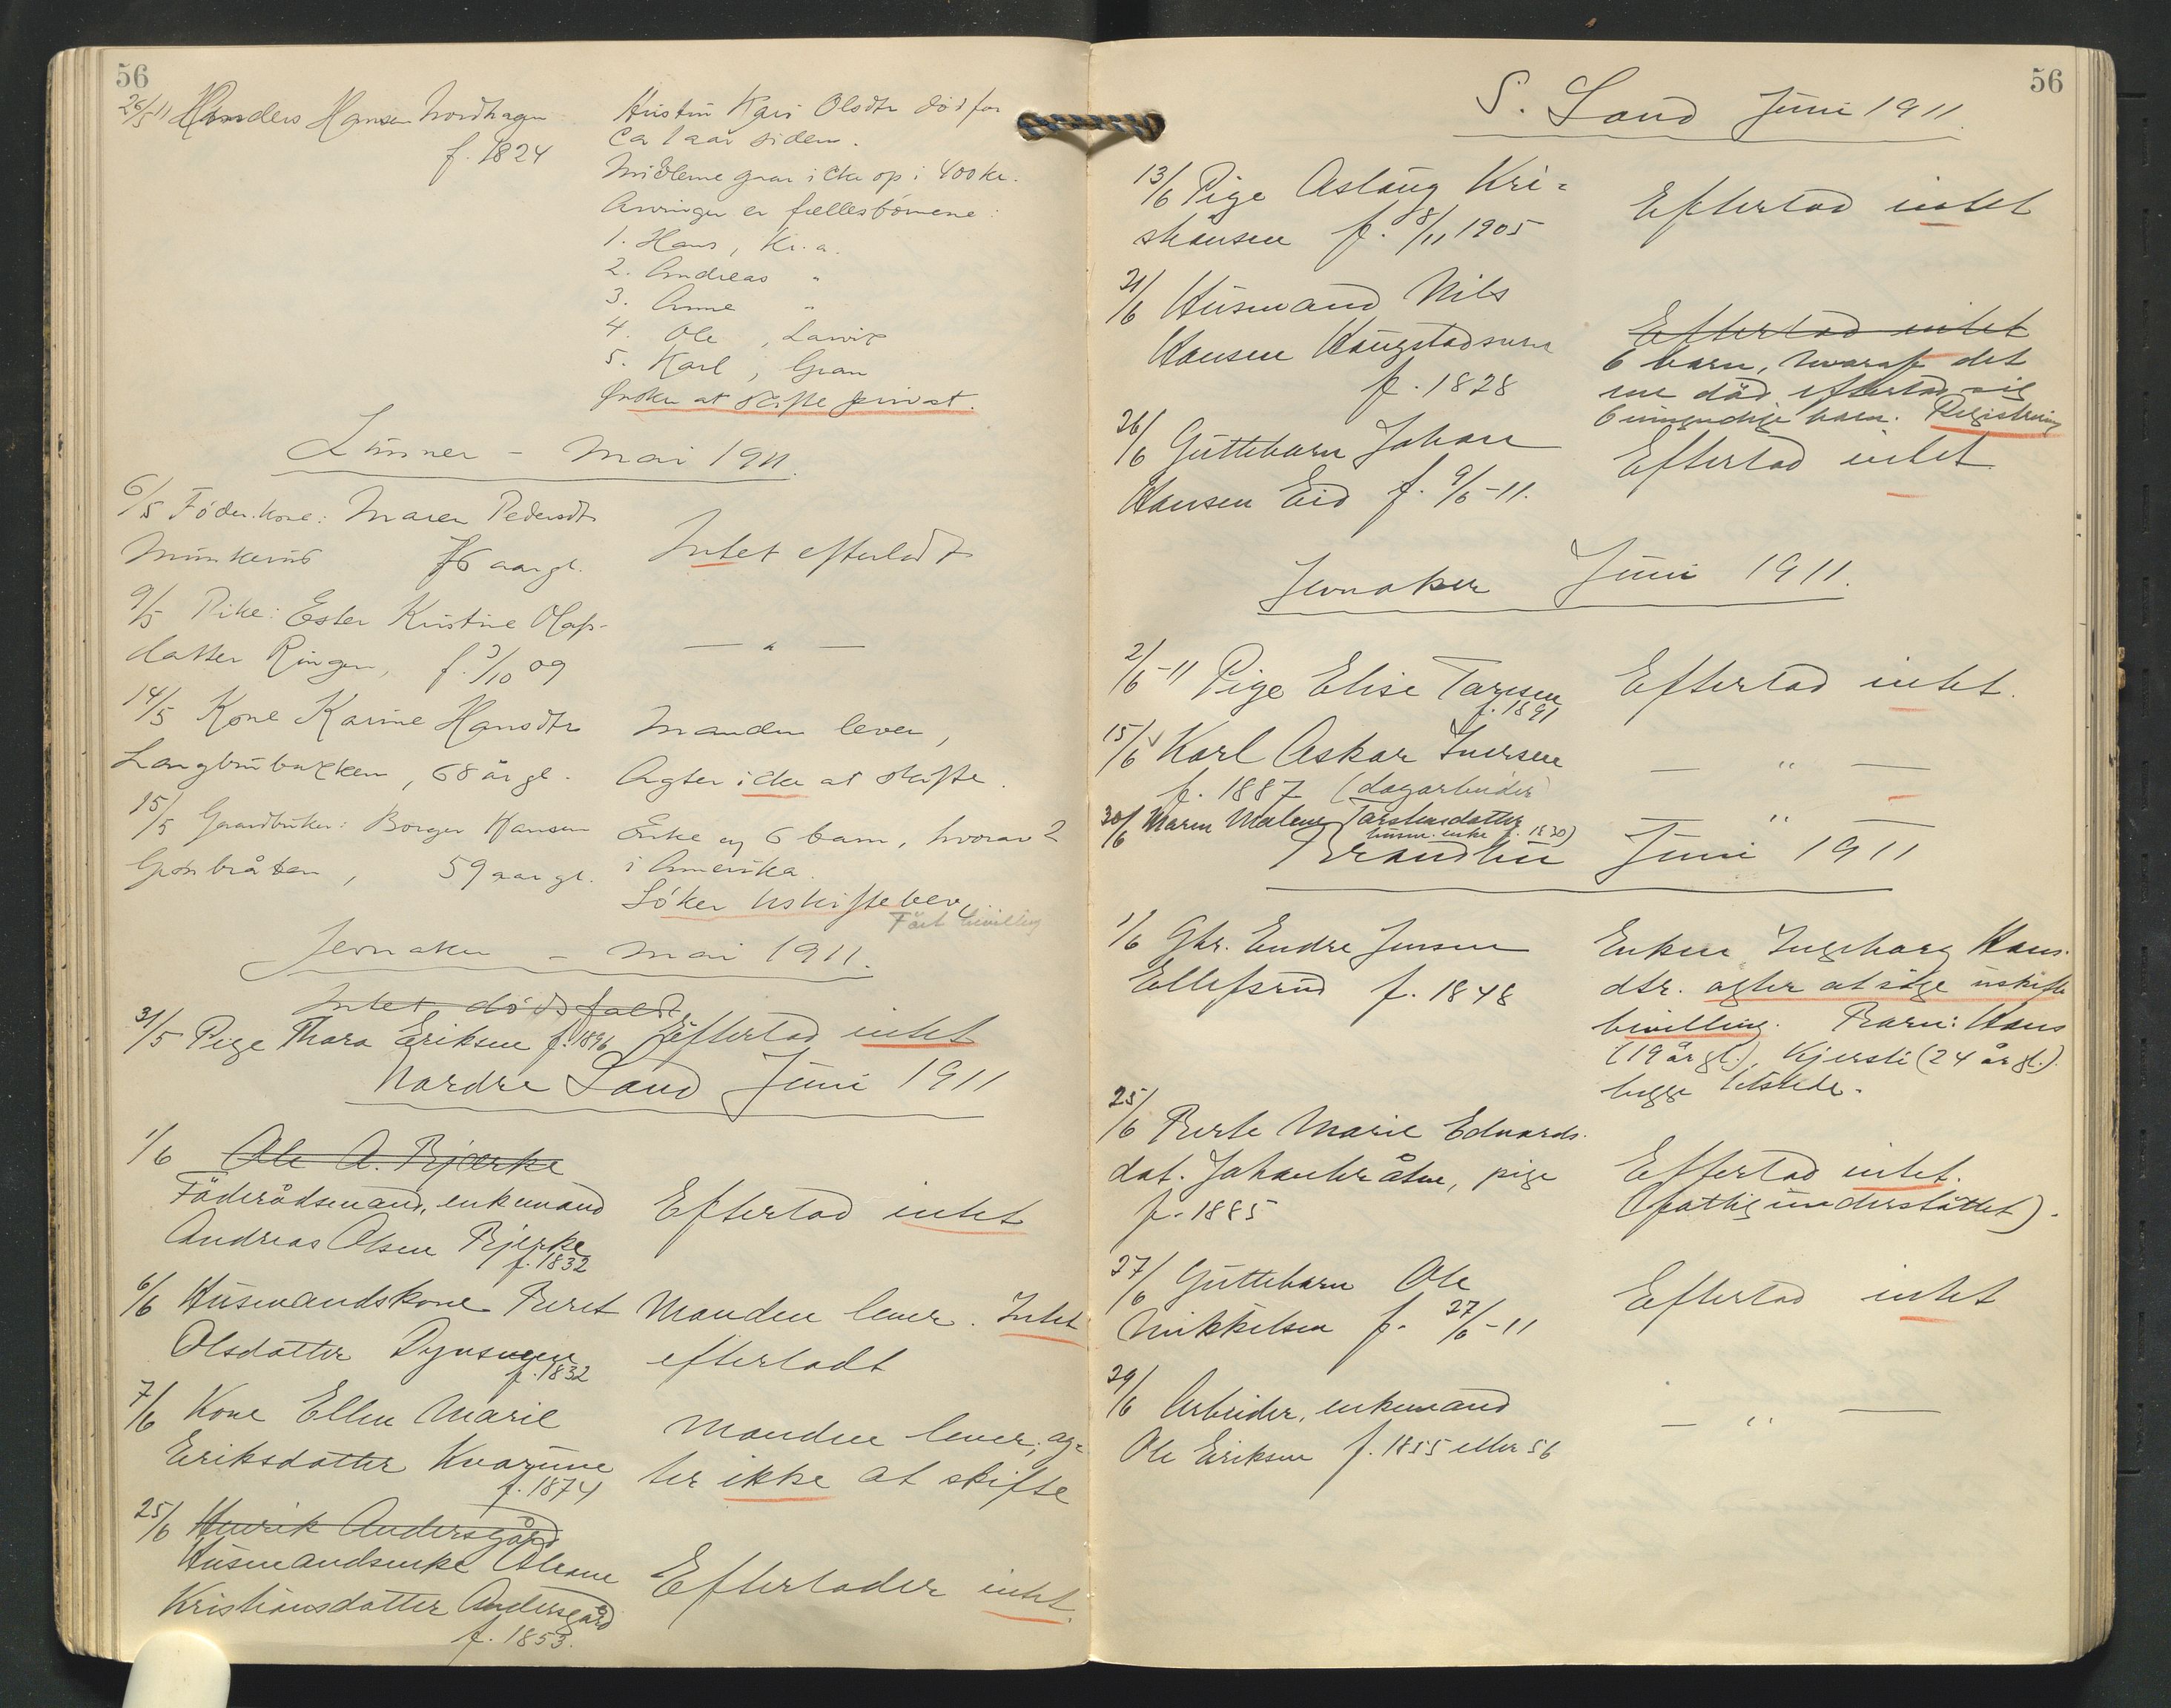 56
26/5 11 Anders Hansen Nordhagen
f. 1824
Hustru Kari Olsdtr død for
ca 1 aar siden.
Midlerne gaar icke op i 400 kr.
Arvinger er fællesbørnene:
1. Hans, Kr.a.
2. Andreas "
3. Anne "
4. Ole , Larvik
5. Karl , Gran
Ønsker at skifte privat.
Lunner - Mai 1911.
6/5 Föder.kone: Maren Pedersdtr
Munkerud 76 aar gl.
Intet efterladt
9/5 Pike: Ester Kristine Olafs-
datter Ringen, f. 3/10 09
— " —
14/5 Kone Karine Hansdtr
Langbrubakken, 68 år gl.
Manden lever,
Agter icke at skifte.
15/5 Gaardbruker: Borger Hansen
59 aar gl.
Enke og 6 barn, hvorav 2
i Amerika.
Söker uskiftebev.
Fåt bevilling
Jevnaker - Mai 1911.
Intet dødsfald
31/5 Pige Thora Eriksen f. 1896 Efterlod intet
Nordre Land Juni 1911
1/6 Ole A. Bjørke
Föderådsmand, enkemand
Andreas Olsen Bjerke
f. 1832
Efterlod intet
6/6 Husmandskone Beret
Olsdatter
f. 1832
Manden lever. Intet
efterladt
7/6 Kone Ellen Marie
Eriksdatter Kvarume
f. 1874
Manden lever; ag-
ter ikke at skifte
25/6 Henrik Andersgård
Husmandsenke Oleane
Kristiansdatter Andersgård
f. 1853.
Efterlader intet.
56
S. Land Juni 1911.
13/6 Pige Aslaug Kri-
stiansen f. 8/11 1905
Efterlod intet
21/6 Husmand Nils
Hansen Haugstadsveen
f. 1828
Efterlod intet
6 barn, hvoraf det
ene död efterlod sig
6 umyndige barn. Registrering
26/6 Guttebarn Johan
Hansen Eid f. 9/6-11.
Efterlod intet
Jevnaker Juni 1911.
2/6-11 Pige Elise Larsen
f. 1891
Efterlod intet.
15/6 Karl Oskar Iversen
f. 1887 (dagarbeider)
— " —
30/6 Maren Malene Torstensdatter
husm. enke f. 1830)
— " —
Brandbu Juni 1911
1/6 Gbr. Endre Jensen
Ellefsrud f. 1848
Enken Ingeborg Hans-
dtr. agter at söge uskifte
bevilling. Barn: Hans
(19 år gl.), Kjersti (24 år gl.).
begge tilstede.
25/6 Berte Marie Edvards-
dat. Johanbråten, pige
f. 1885
Efterlod intet.
(fattigunderstöttet).
27/6 Guttebarn Ole
Mikkelsen f. 27/6-11
Efterlod intet
29/6 Arbeider, enkemand
Ole Eriksen f. 1855 eller 56
— " —